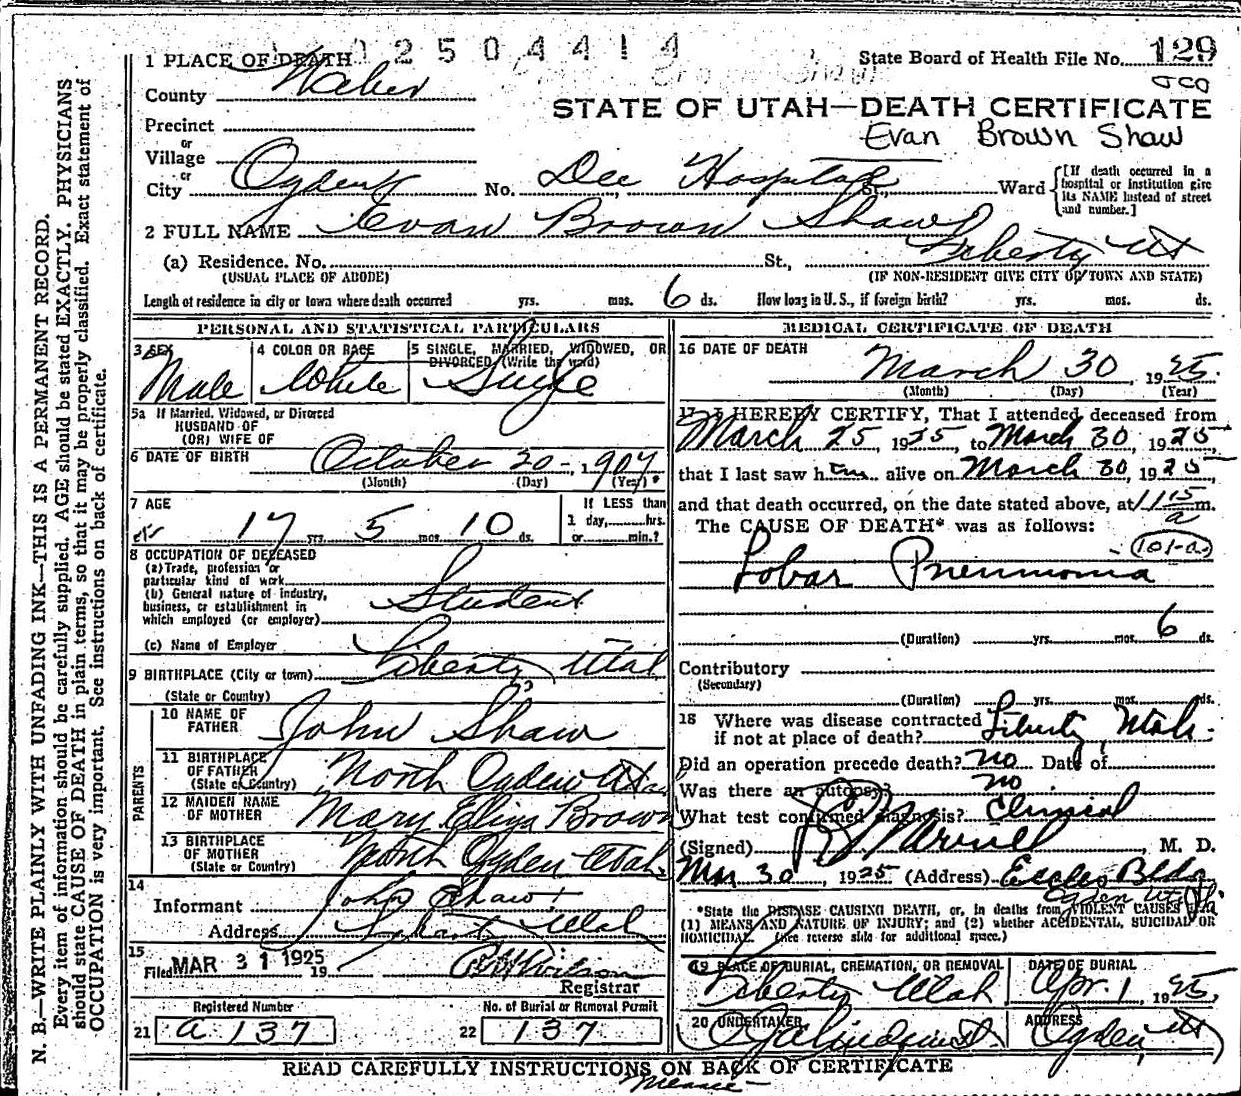 1 PLACE OF DEATH 2504414 State Board of Health File No. 129
County Weber
STATE OF UTAH—DEATH CERTIFICATE
Precinct
Evan Brown Shaw
or
Village
or
City Ogden No. Dee Hospital St., Ward [If death occurred in a hospital or institution give its NAME instead of street and number.]
2 FULL NAME Evan Brown Shaw
(a) Residence. No. St., Liberty Ut
(USUAL PLACE OF ABODE) (IF NON-RESIDENT GIVE CITY OR TOWN AND STATE)
Length of residence in city or town where death occurred yrs. mos. 6 ds. How long in U. S., if foreign birth? yrs. mos. ds.
PERSONAL AND STATISTICAL PARTICULARS
3 SEX 4 COLOR OR RACE 5 SINGLE, MARRIED, WIDOWED, OR
DIVORCED (Write the word)
Male White Single
5a If Married, Widowed, or Divorced
HUSBAND OF
(OR) WIFE OF
6 DATE OF BIRTH October 20 - 1907
(Month) (Day) (Year)
7 AGE If LESS than
17 yrs. 5 mos. 10 ds. 1 day, hrs.
or min.?
8 OCCUPATION OF DECEASED
(a) Trade, profession or
particular kind of work
(b) General nature of industry,
business, or establishment in
which employed (or employer) Student
(c) Name of Employer
9 BIRTHPLACE (City or town) Liberty, Utah
(State or Country)
PARENTS
10 NAME OF
FATHER John Shaw
11 BIRTHPLACE
OF FATHER
(State or Country) North Ogden Utah
12 MAIDEN NAME
OF MOTHER Mary Eliza Brown
13 BIRTHPLACE
OF MOTHER
(State or Country) North Ogden Utah
14
Informant John Shaw
Address Utah
15
Filed MAR 31 1925 19 Wilson
Registrar
Registered Number No. of Burial or Removal Permit
21 a 137 22 137
MEDICAL CERTIFICATE OF DEATH
16 DATE OF DEATH
March 30, 1925.
(Month) (Day) (Year)
17 I HEREBY CERTIFY, That I attended deceased from
March 25, 1925, to March 30, 1925
that I last saw him alive on March 30, 1925,
and that death occurred, on the date stated above, at 11 15 a m.
The CAUSE OF DEATH* was as follows:
101-a
Lobar Pneumonia
(Duration) yrs. mos. 6 ds.
Contributory
(Secondary)
(Duration) yrs. mos. ds.
18 Where was disease contracted
if not at place of death? Liberty, Utah.
Did an operation precede death? no Date of
Was there an autopsy? no
What test confirmed diagnosis? Clinical
(Signed) Merrill, M. D.
Mar 30, 1925 (Address) Eccles Bldg
Ogden Utah
*State the DISEASE CAUSING DEATH, or, in deaths from VIOLENT CAUSES
(1) MEANS AND NATURE OF INJURY; and (2) whether ACCIDENTAL, SUICIDAL OR
HOMICIDAL. (See reverse side for additional space.)
19 PLACE OF BURIAL, CREMATION, OR REMOVAL DATE OF BURIAL
Liberty Utah Apr. 1, 1925.
20 UNDERTAKER ADDRESS
Lindquist Ogden, Ut
READ CAREFULLY INSTRUCTIONS ON BACK OF CERTIFICATE
N. B.—WRITE PLAINLY WITH UNFADING INK—THIS IS A PERMANENT RECORD.
Every item of information should be carefully supplied. AGE should be stated EXACTLY. PHYSICIANS
should state CAUSE OF DEATH in plain terms, so that it may be properly classified. Exact statement of
OCCUPATION is very important. See instructions on back of certificate.